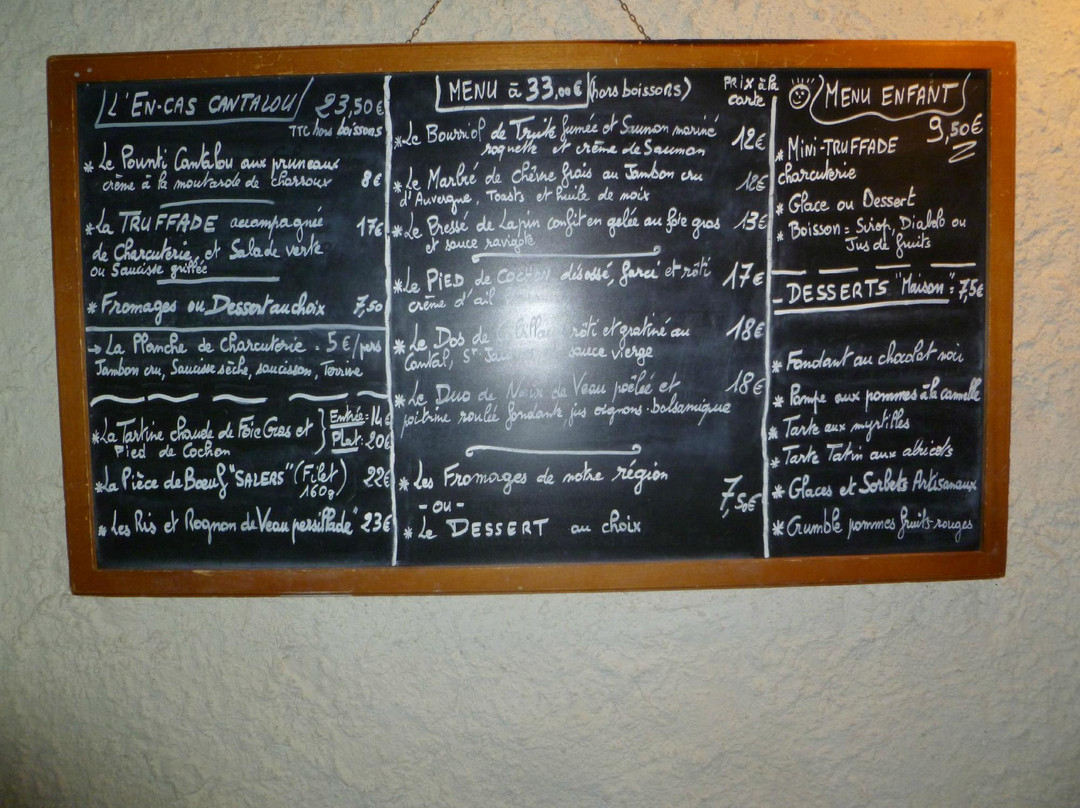 L'EN-CAS CANTALOU 23,50€
TTC hors boissons
* Le Pounti Cantalou aux pruneaux
crème à la moutarde de charroux 8€
* La TRUFFADE accompagnée 17€
de Charcuterie, et Salade verte
ou Saucisse grillée
* Fromages ou Dessert au choix 7,50
→ La Planche de Charcuterie : 5€/pers
Jambon cru, Saucisse sèche, saucisson, Terrine
* La Tartine chaude de Foie Gras et
Pied de Cochon
Entrée = 14€
Plat : 20€
* La Pièce de Bœuf "SALERS" (Filet) 22€
160g
* Les Ris et Rognon de Veau persillade" 23€
MENU à 33,00€ (hors boissons)
PRIX à la
carte
* Le de Truite fumée et Saumon mariné 12€
roquette et crème de Saumon
* Le Marbré de Chèvre frais au Jambon cru 12€
d'Auvergne, Toasts et huile de noix
* Le Pressé de Lapin confit en gelée au foie gras 13€
et sauce ravigote
* Le PIED de COCHON désossé, farci et rôti 17€
crème d'ail
* Le Dos de rôti et gratiné au 18€
Cantal, sauce vierge
* Le Duo de Noix de Veau poêlée et 18€
poitrine roulée fondante, jus oignons-balsamique
* Les Fromages de notre région
- ou - 7,50€
* Le DESSERT au choix
MENU ENFANT
9,50€
* MINI-TRUFFADE
charcuterie
* Glace ou Dessert
* Boisson = Sirop, Diabolo ou
Jus de fruits
- DESSERTS "Maison" = 7,5€
* Fondant au chocolat noir
* Pompe aux pommes à la cannelle
* Tarte aux myrtilles
* Tarte Tatin aux abricots
* Glaces et Sorbets Artisanaux
* Crumble pommes fruits-rouges